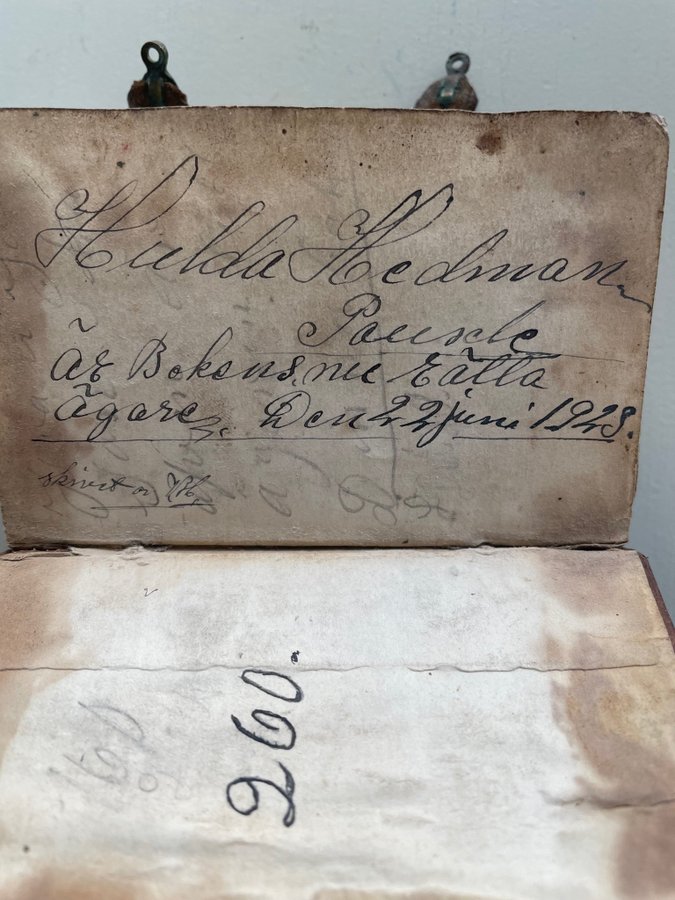 Hulda Hedman
Pauxle
är Bokens nu rätta
ägare. Den 22 juni 1928.
skrivet av
260.